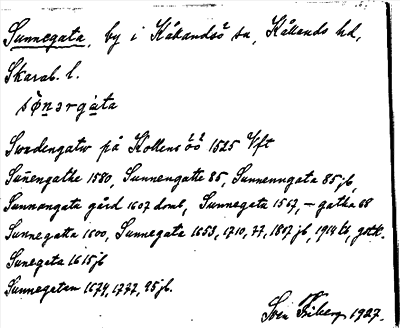 Sunnegata, by i Kåkandsö sn, Kållands hd,
Skarab. l.
sö̀nərgáta
Swdengatw på Kollens öö 1525 Vft
Suñengathe 1580, Sunnengatte 85, Sunnenngata 85 jb,
Sunnangata gård 1607 domb, Sunnegata 1567, – gatha 88
Sunnegatta 1600, Sunnegata 1653, 1710, 77, 1877 jb, 1914 tb, gstk.
Sunegata 1615 jb
Sunnegatan 1674, 1777, 25 jb.
Sven 1927.